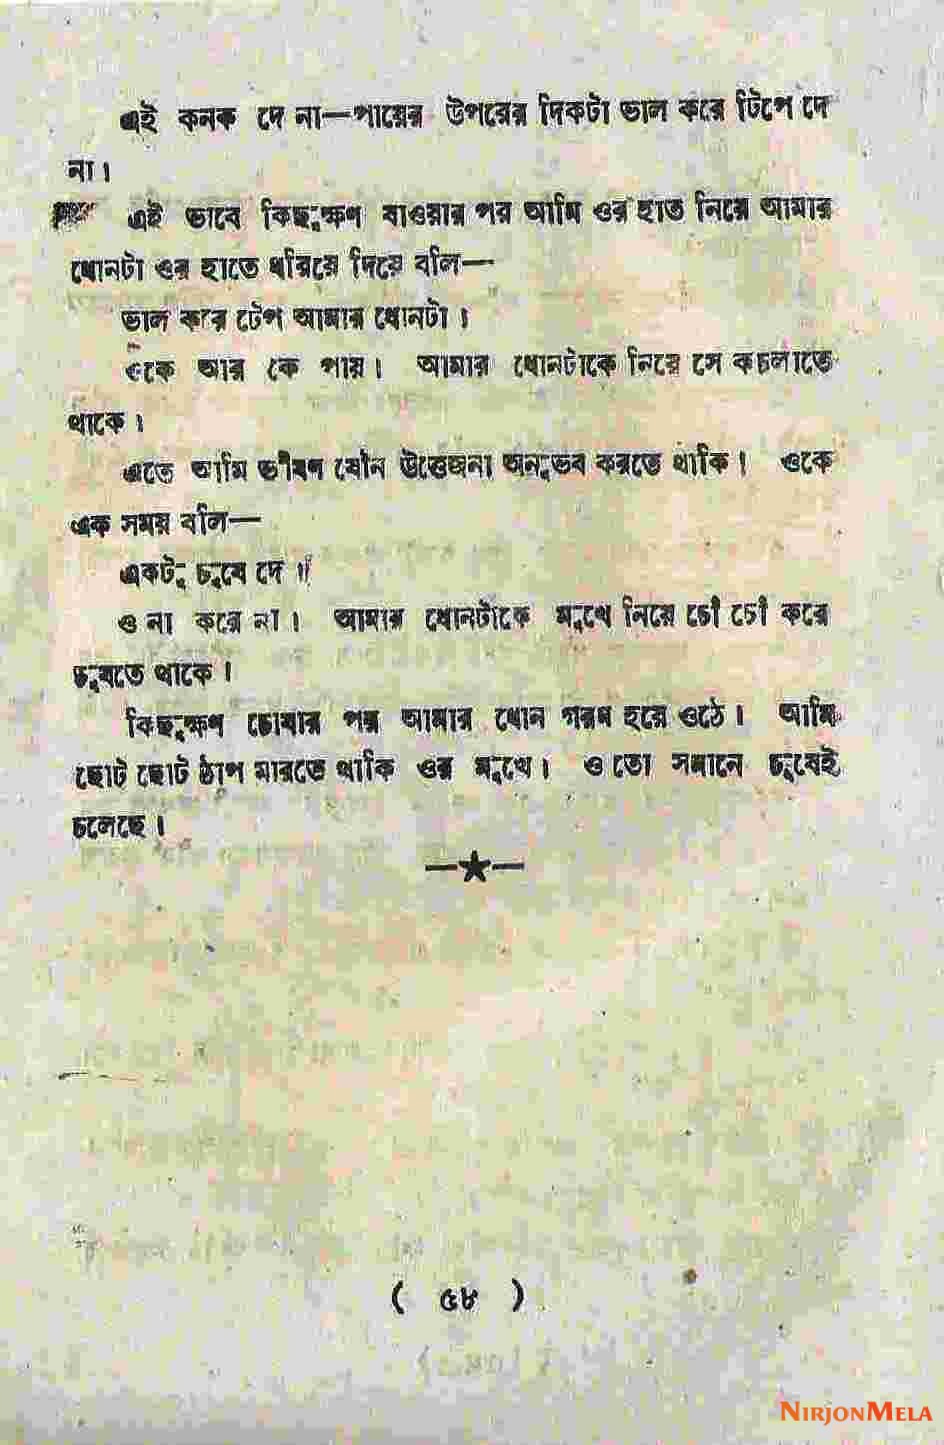 এই কনক দে না—পায়ের উপরের দিকটা ভাল করে টিপে দে
না।
এই ভাবে কিছুক্ষণ যাওয়ার পর আমি ওর হাত নিয়ে আমার
ধোনটা ওর হাতে ধরিয়ে দিয়ে বলি—
ভাল করে টেপ আমার ধোনটা।
ওকে আর কে পায়। আমার ধোনটাকে নিয়ে সে কচলাতে
থাকে।
এতে আমি ভীষণ যৌন উত্তেজনা অনুভব করতে থাকি। ওকে
এক সময় বলি—
একটু চুষে দে॥
ও না করে না। আমার ধোনটাকে মুখে নিয়ে চোঁ চোঁ করে
চুষতে থাকে।
কিছুক্ষণ চোষার পর আমার ধোন গরম হয়ে ওঠে। আমি
ছোট ছোট ঠাপ মারতে থাকি ওর মুখে। ও তো সমানে চুষেই
চলেছে।
—★—
( ৫৮ )
NIRJONMELA